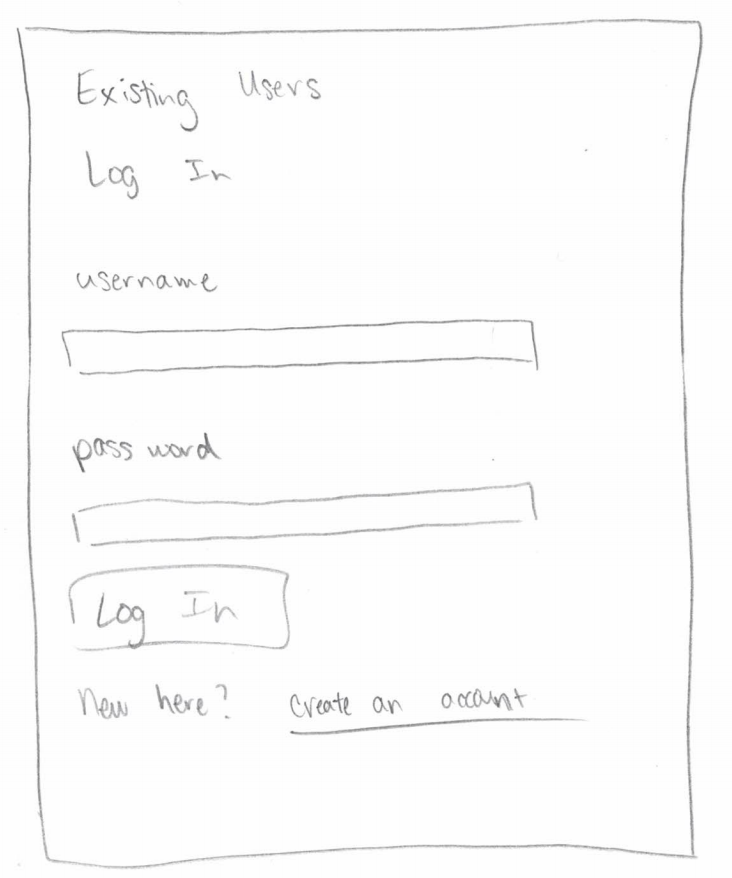 Existing Users
Log In
username
password
Log In
New here? create an account